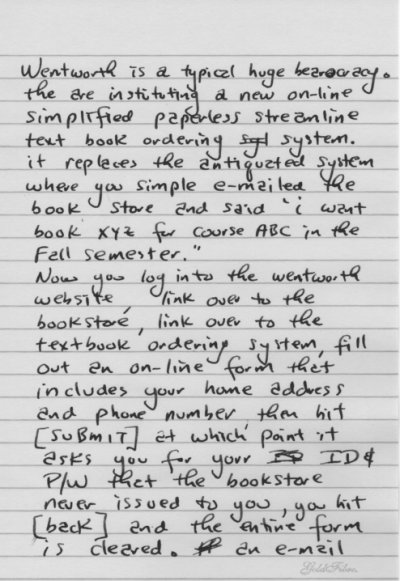 Wentworth is a typical huge bearocracy.
the are instituting a new on-line
simplified paperless streamline
text book ordering system.
it replaces the antiquated system
where you simple e-mailed the
book store and said "i want
book XYZ for course ABC in the
Fall semester."
Now you log into the wentworth
website, link over to the
bookstore, link over to the
textbook ordering system, fill
out an on-line form that
includes your home address
and phone number, then hit
[SUBMIT] at which point it
asks you for your ID &
P/W that the bookstore
never issued to you, you hit
[back] and the entire form
is cleared. an e-mail
Gold Fibre